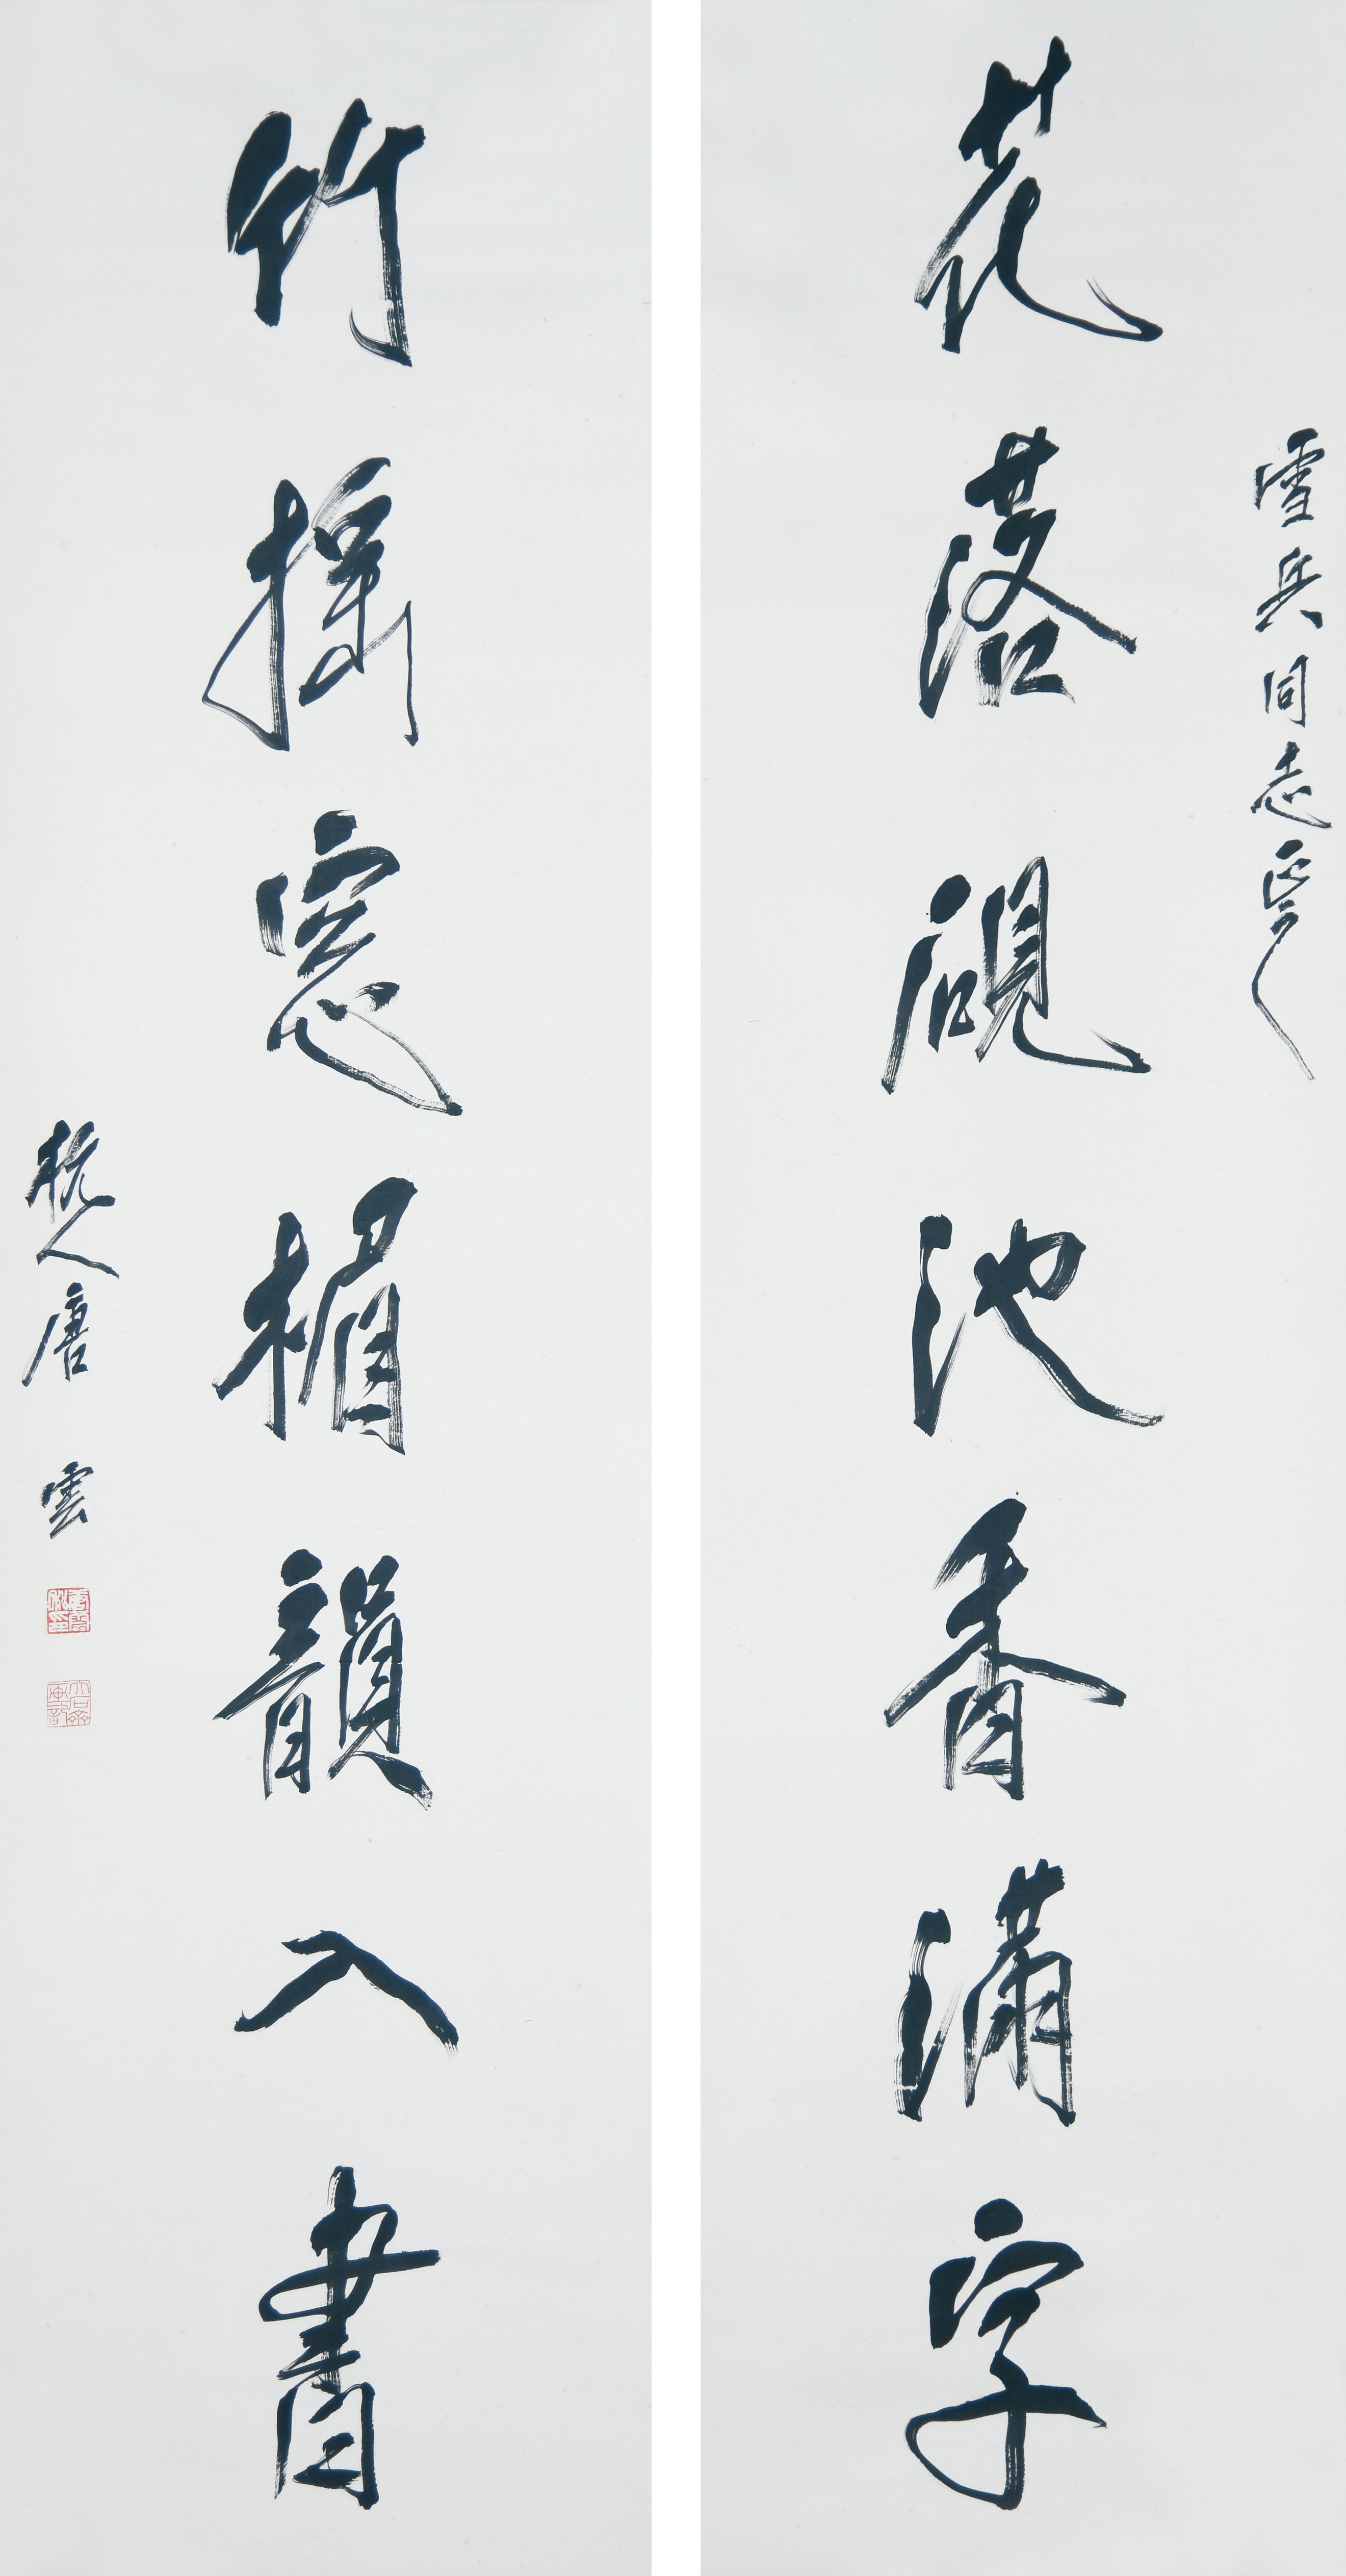 雪兵同志正之
花落硯池香滿字
竹搖窓楣韻入書
杭人唐雲